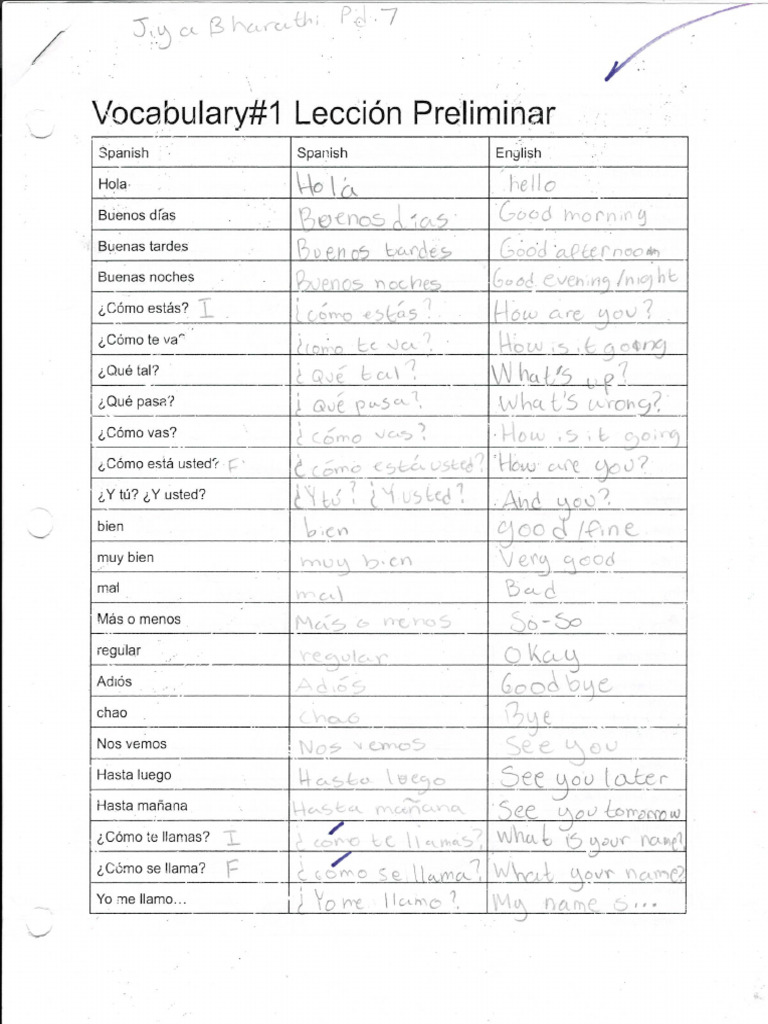 Jiya Bharathi Pd. 7
Vocabulary#1 Lección Preliminar
Spanish Spanish English
Hola Hola hello
Buenos días Buenos días Good morning
Buenas tardes Buenos tardes Good afternoon
Buenas noches Buenos noches Good evening/night
¿Cómo estás? I ¿cómo estás? How are you?
¿Cómo te va? ¿como te va? How is it going
¿Qué tal? ¿Qué tal? What's up?
¿Qué pasa? ¿qué pasa? What's wrong?
¿Cómo vas? ¿cómo vas? How is it going
¿Cómo está usted? F ¿cómo está usted? How are you?
¿Y tú? ¿Y usted? ¿Y tú? ¿Y usted? And you?
bien bien good/fine
muy bien muy bien Very good
mal mal Bad
Más o menos Más o menos So-So
regular regular Okay
Adiós Adiós Goodbye
chao chao Bye
Nos vemos Nos vemos See you
Hasta luego Hasta luego See you later
Hasta mañana Hasta mañana See you tomorrow
¿Cómo te llamas? I ¿como te llamas? What is your name?
¿Cómo se llama? F ¿cómo se llama? What your name?
Yo me llamo... ¿Yo me llamo? My name is...